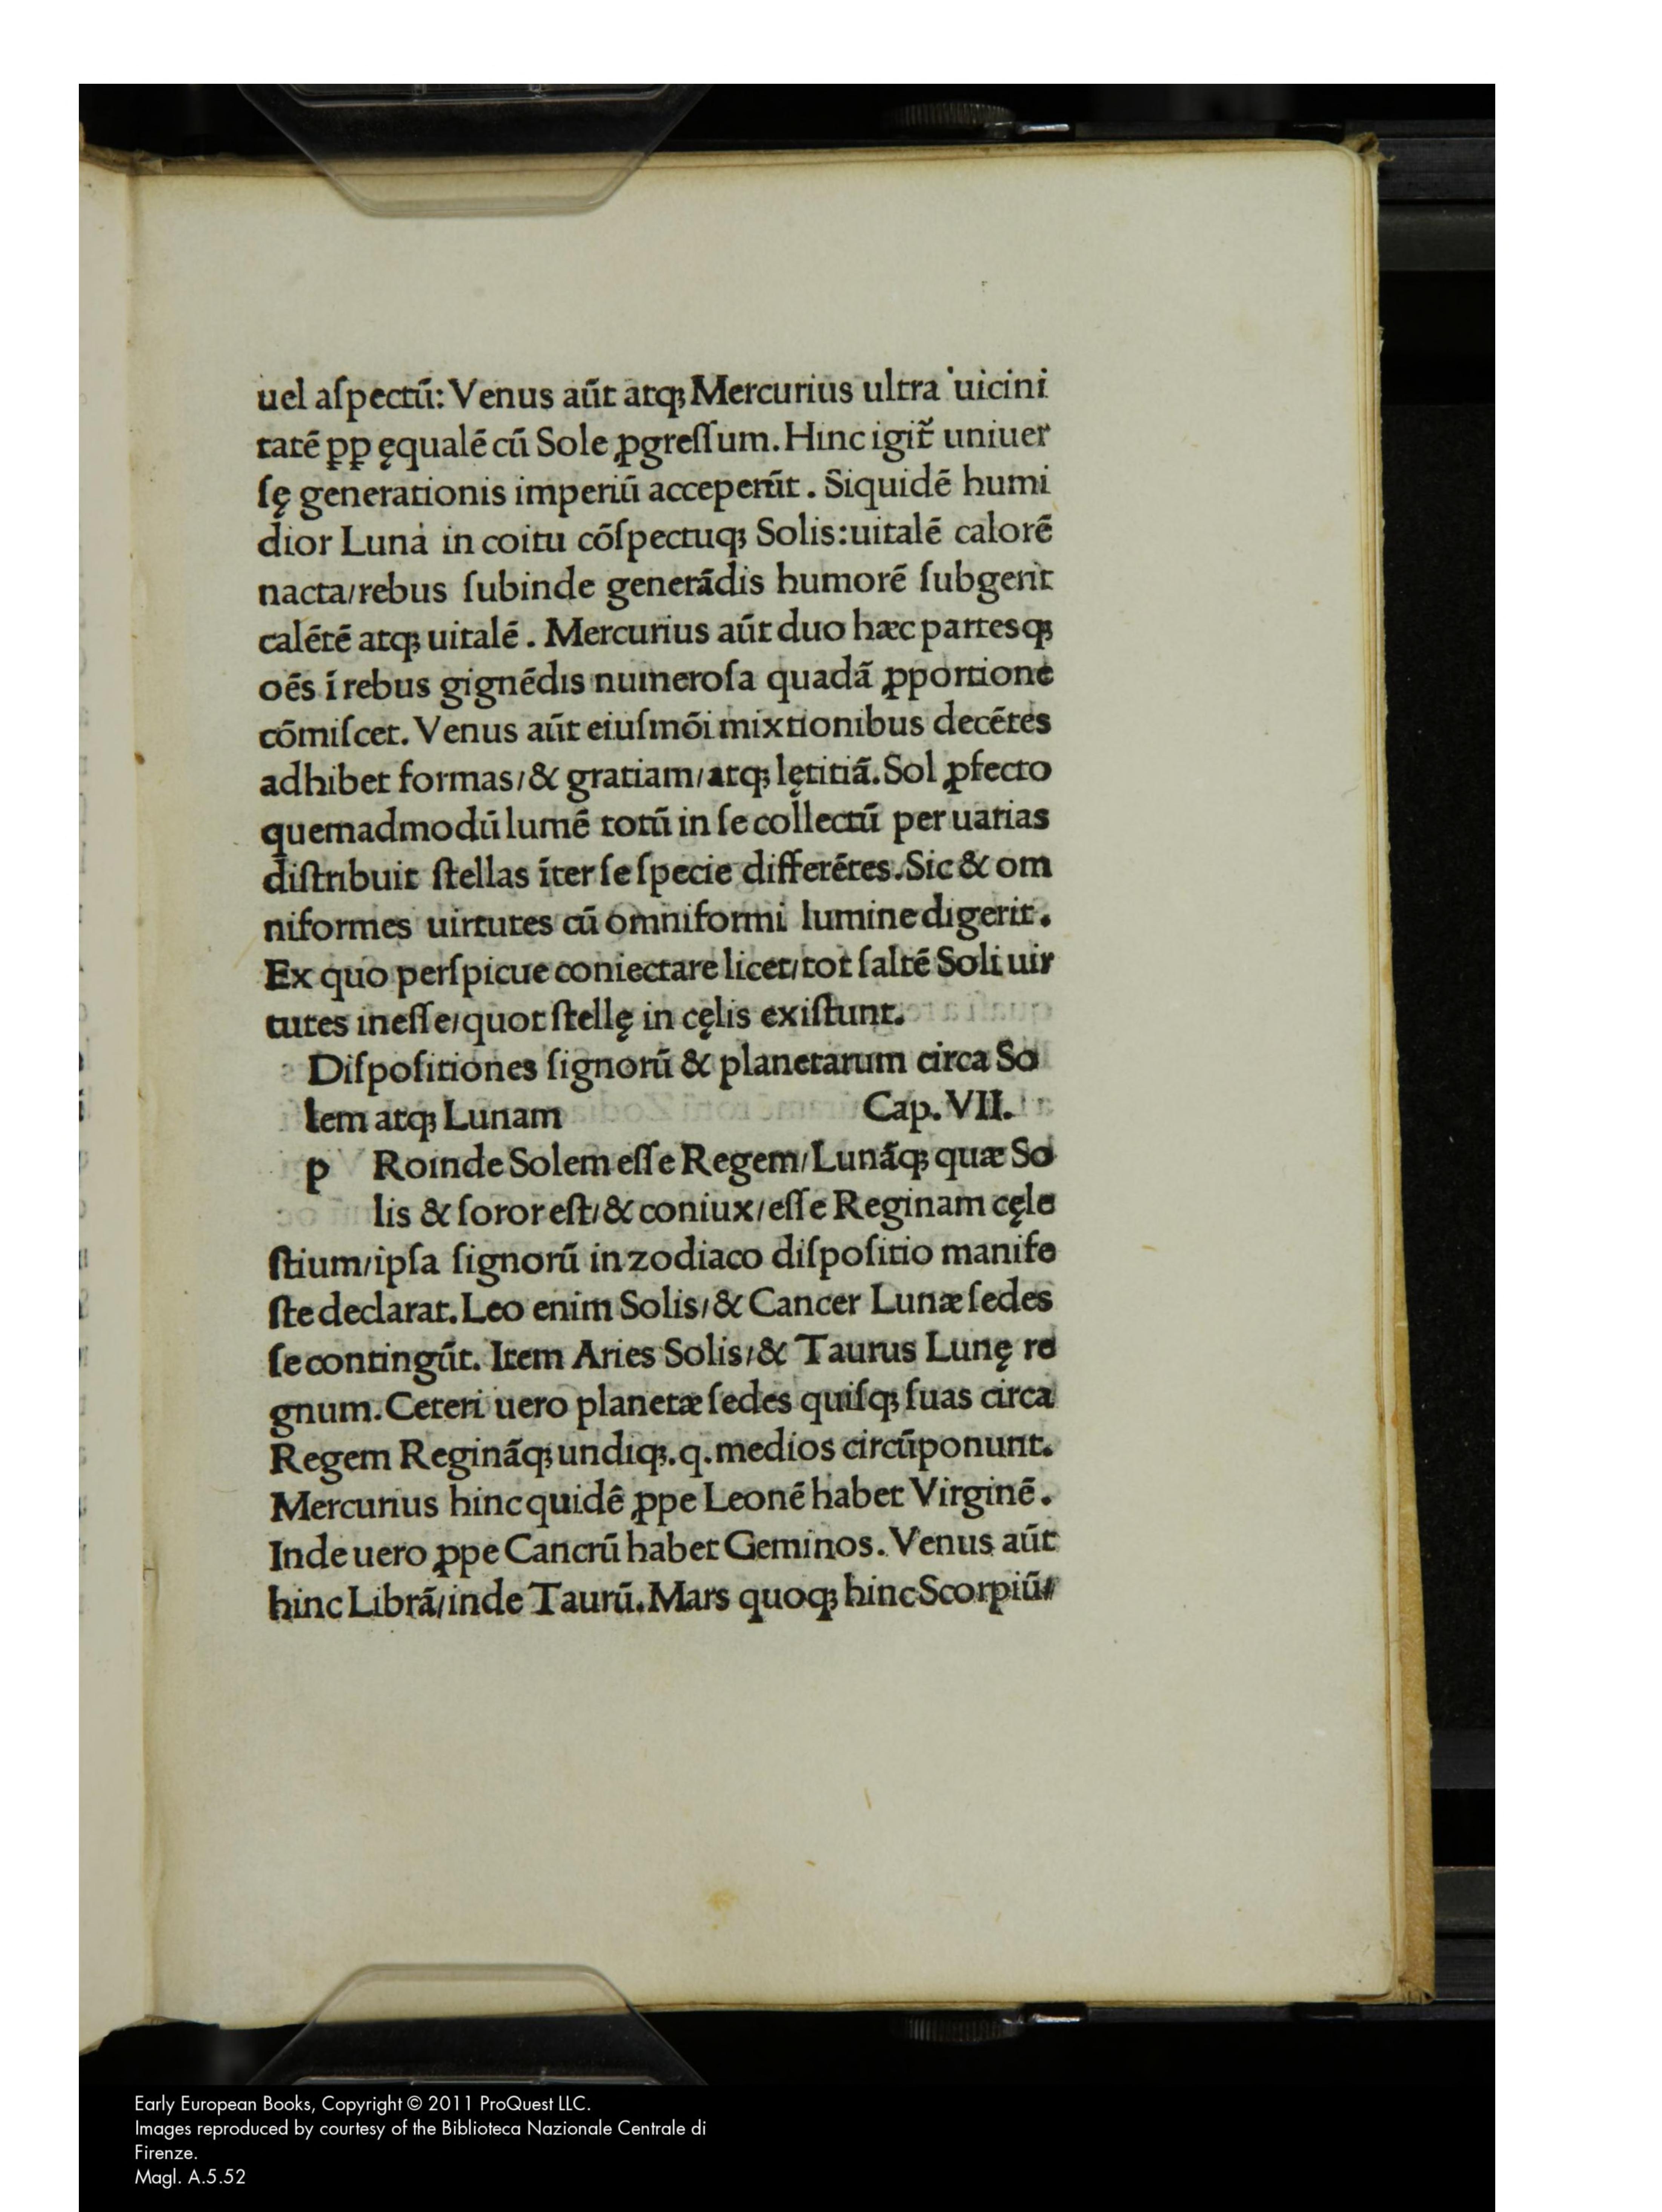 uel aſpectū: Venus aūt atq; Mercurius ultra uicini
tatē ꝓp ęqualē cū Sole ꝓgreſſum. Hinc igit̃ uniuer
ſę generationis imperiū acceperūt. Siquidē humi
dior Luna in coitu cōſpectuq; Solis: uitalē calorē
nacta/rebus ſubinde generādis humorē ſubgerit
calētē atq; uitalē. Mercurius aūt duo hæc partesq;
oēs ī rebus gignēdis numeroſa quadā ꝓportione
cōmiſcet. Venus aūt eiuſmōi mixtionibus decētes
adhibet formas/& gratiam/atq; lętitiā. Sol ꝓfecto
quemadmodū lumē totū in ſe collectū per uarias
diſtribuit ſtellas īter ſe ſpecie differētes. Sic & om
niformes uirtutes cū omniformi lumine digerit.
Ex quo perſpicue coniectare licet/tot ſaltē Soli uir
tutes ineſſe/quot ſtellę in cęlis exiſtunt.
Diſpoſitiones ſignorū & planetarum circa So
lem atq; Lunam Cap. VII.
p Roinde Solem eſſe Regem/Lunāq; quæ So
lis & ſoror eſt/& coniux/eſſe Reginam cęle
ſtium/ipſa ſignorū in zodiaco diſpoſitio manife
ſte declarat. Leo enim Solis/& Cancer Lunæ ſedes
ſe contingūt. Item Aries Solis/& Taurus Lunę re
gnum. Ceteri uero planetæ ſedes quiſq; ſuas circa
Regem Regināq; undiq;.q. medios circūponunt.
Mercurius hinc quidē ꝓpe Leonē habet Virginē.
Inde uero ꝓpe Cancrū habet Geminos. Venus aūt
hinc Librā/inde Taurū. Mars quoq; hinc Scorpiū/
Early European Books, Copyright © 2011 ProQuest LLC.
Images reproduced by courtesy of the Biblioteca Nazionale Centrale di
Firenze.
Magl. A.5.52